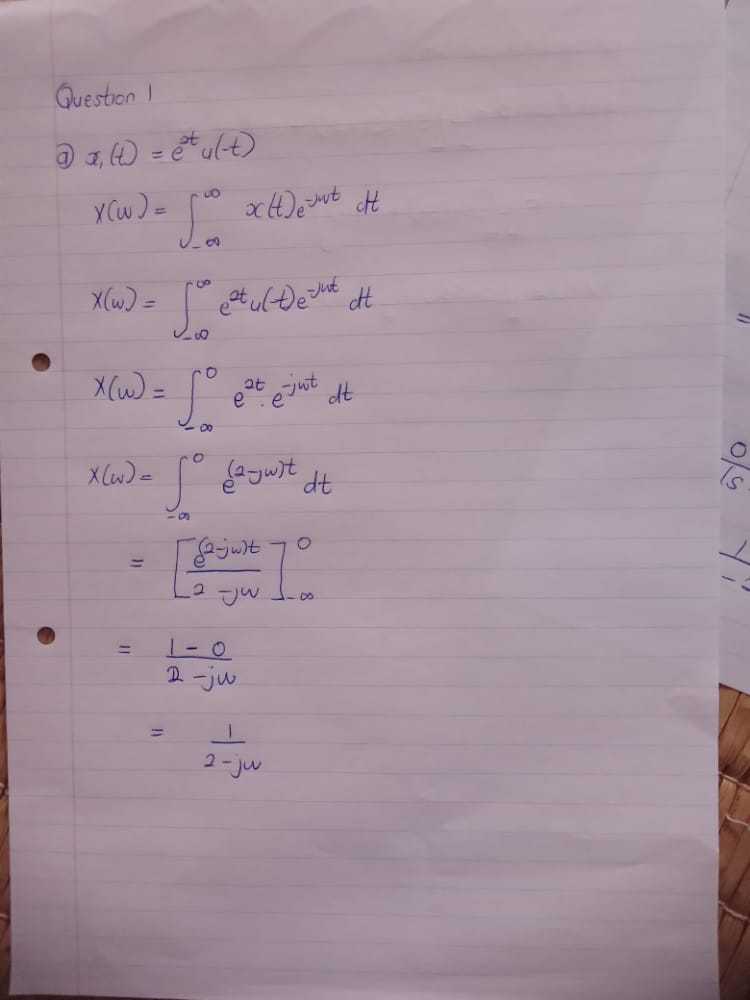 Question 1
a) x₁(t) = e^{2t} u(-t)
X(w) = ∫_{-∞}^{∞} x(t)e^{-jwt} dt
X(w) = ∫_{-∞}^{∞} e^{2t} u(-t)e^{-jwt} dt
X(w) = ∫_{-∞}^{0} e^{2t} . e^{-jwt} dt
X(w) = ∫_{-∞}^{0} e^{(2-jw)t} dt
= [e^{(2-jw)t} / 2 - jw]_{-∞}^{0}
= 1 - 0 / 2 - jw
= 1 / 2 - jw